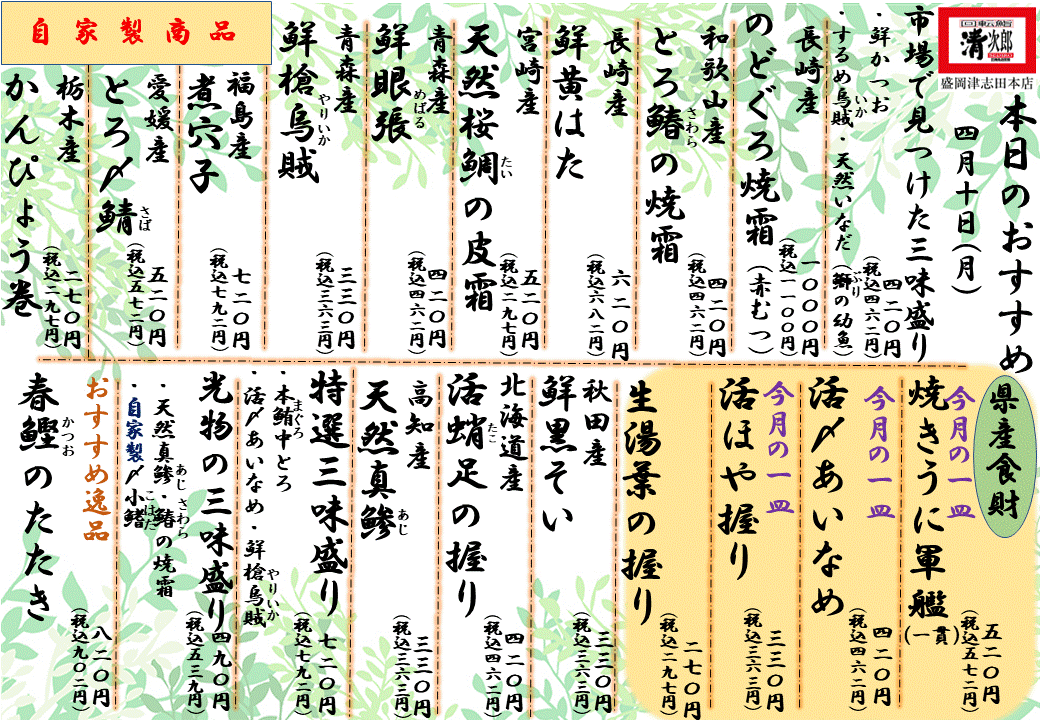 回転鮨
清次郎
盛岡津志田本店
本日のおすすめ
四月十日(月)
市場で見つけた三味盛り
・鮮かつお
・するめ烏賊・天然いなだ
いか
(鰤の幼魚)
ぶり
四二〇円
(税込四六二円)
長崎産
のどぐろ焼霜(赤むつ)
一〇〇〇円
(税込一一〇〇円)
和歌山産
とろ鰆の焼霜
さわら
四二〇円
(税込四六二円)
長崎産
鮮黄はた
六二〇円
(税込六八二円)
宮崎産
天然桜鯛の皮霜
たい
五二〇円
(税込二九七円)
青森産
鮮眼張
めばる
四二〇円
(税込四六二円)
青森産
鮮槍烏賊
やりいか
三三〇円
(税込三六三円)
自家製商品
福島産
煮穴子
七二〇円
(税込七九二円)
愛媛産
とろ〆鯖
さば
五二〇円
(税込五七二円)
栃木産
かんぴょう巻
二七〇円
(税込二九七円)
県産食財
今月の一皿
焼きうに軍艦
(一貫)
五二〇円
(税込五七二円)
今月の一皿
活〆あいなめ
四二〇円
(税込四六二円)
今月の一皿
活ほや握り
三三〇円
(税込三六三円)
生湯葉の握り
二七〇円
(税込二九七円)
秋田産
鮮黒そい
三三〇円
(税込三六三円)
北海道産
活蛸足の握り
たこ
四二〇円
(税込四六二円)
高知産
天然真鯵
あじ
三三〇円
(税込三六三円)
特選三味盛り
・本鮪中とろ
まぐろ
・活〆あいなめ・鮮槍烏賊
やりいか
七二〇円
(税込七九二円)
光物の三味盛り
・天然真鯵・鰆の焼霜
あじ さわら
・自家製〆小鰭
こはだ
四九〇円
(税込五三九円)
おすすめ逸品
春鰹のたたき
かつお
八二〇円
(税込九〇二円)